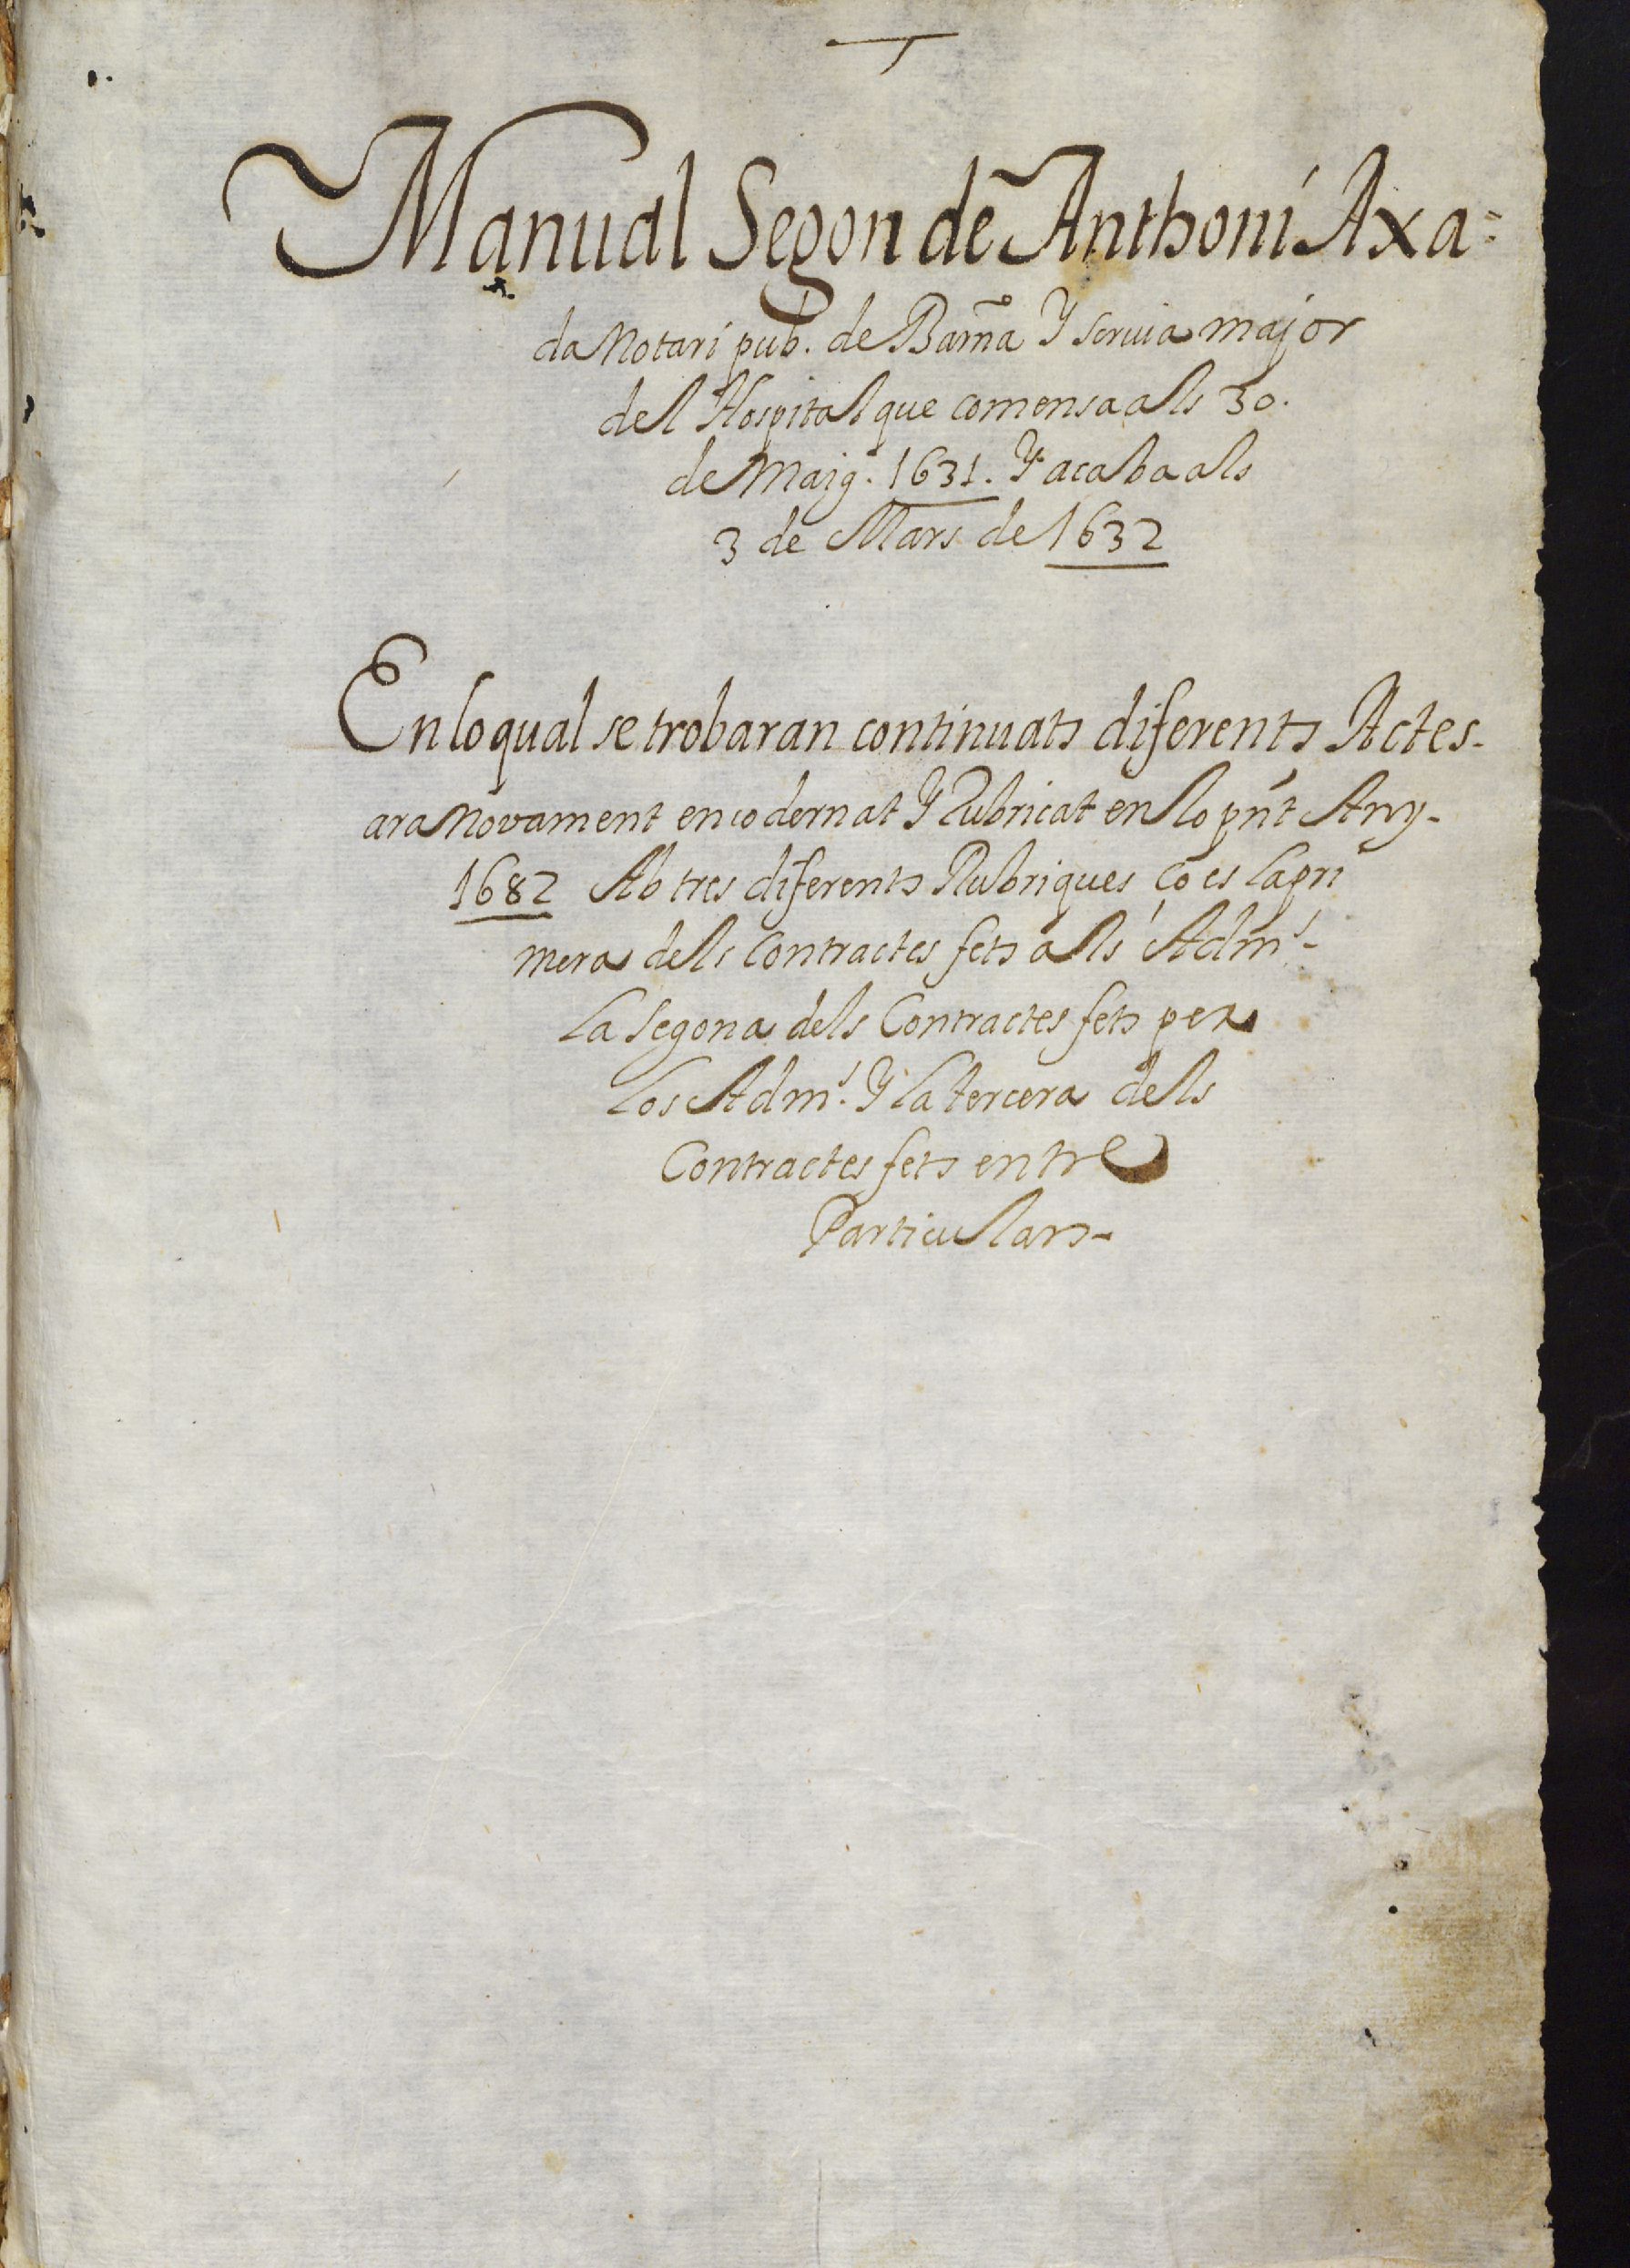 Manual Segon de Anthoni Axa=
da Notari pub.º de Barña Y scriua major
del Hospital que comensa als 30.
de Maig. 1631. Y acaba als
3 de Mars de 1632
En lo qual se trobaran continuats diferents Actes-
ara Novament encodernat Y Rubricat en lo pñt Any-
1682 Ab tres diferents Rubriques ço es la pri
mera dels Contractes fets als Adm.ˢ-
La Segona dels Contractes fets per
Los Adm.ˢ Y la tercera dels
Contractes fets entre
Particulars-